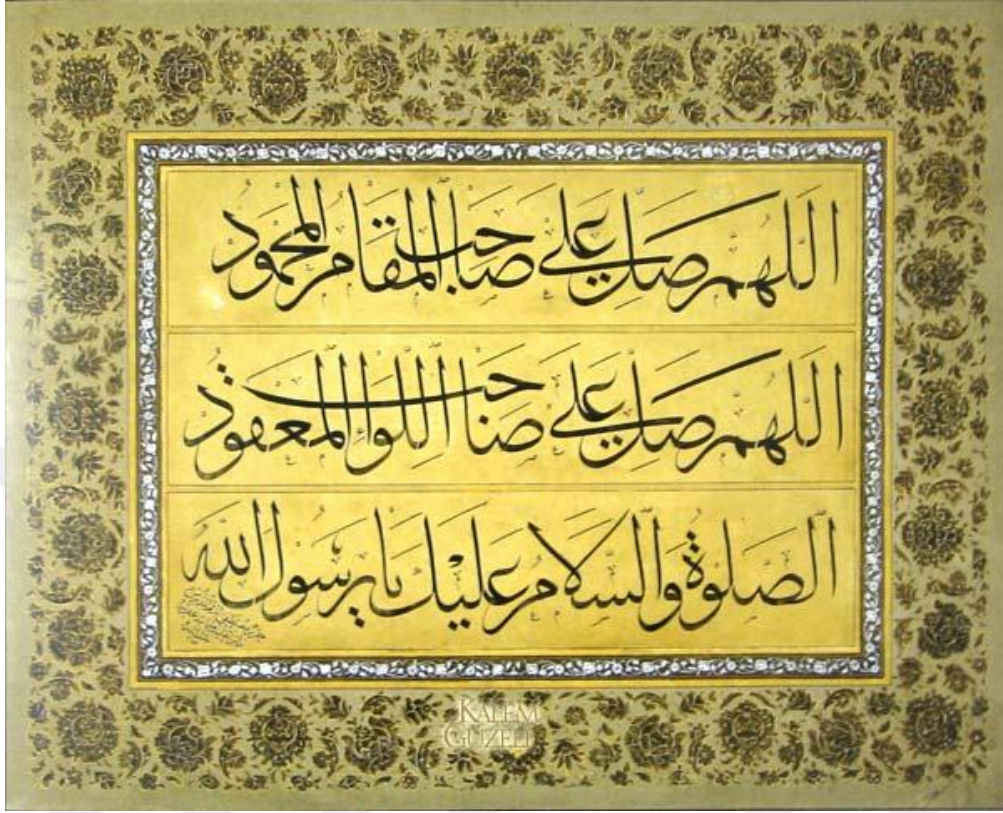 اللهم صل على صاحب المقام المحمود
اللهم صل على صاحب اللواء المعقود
الصلوة والسلام عليك يا رسول الله
KALEM
GÜZELİ